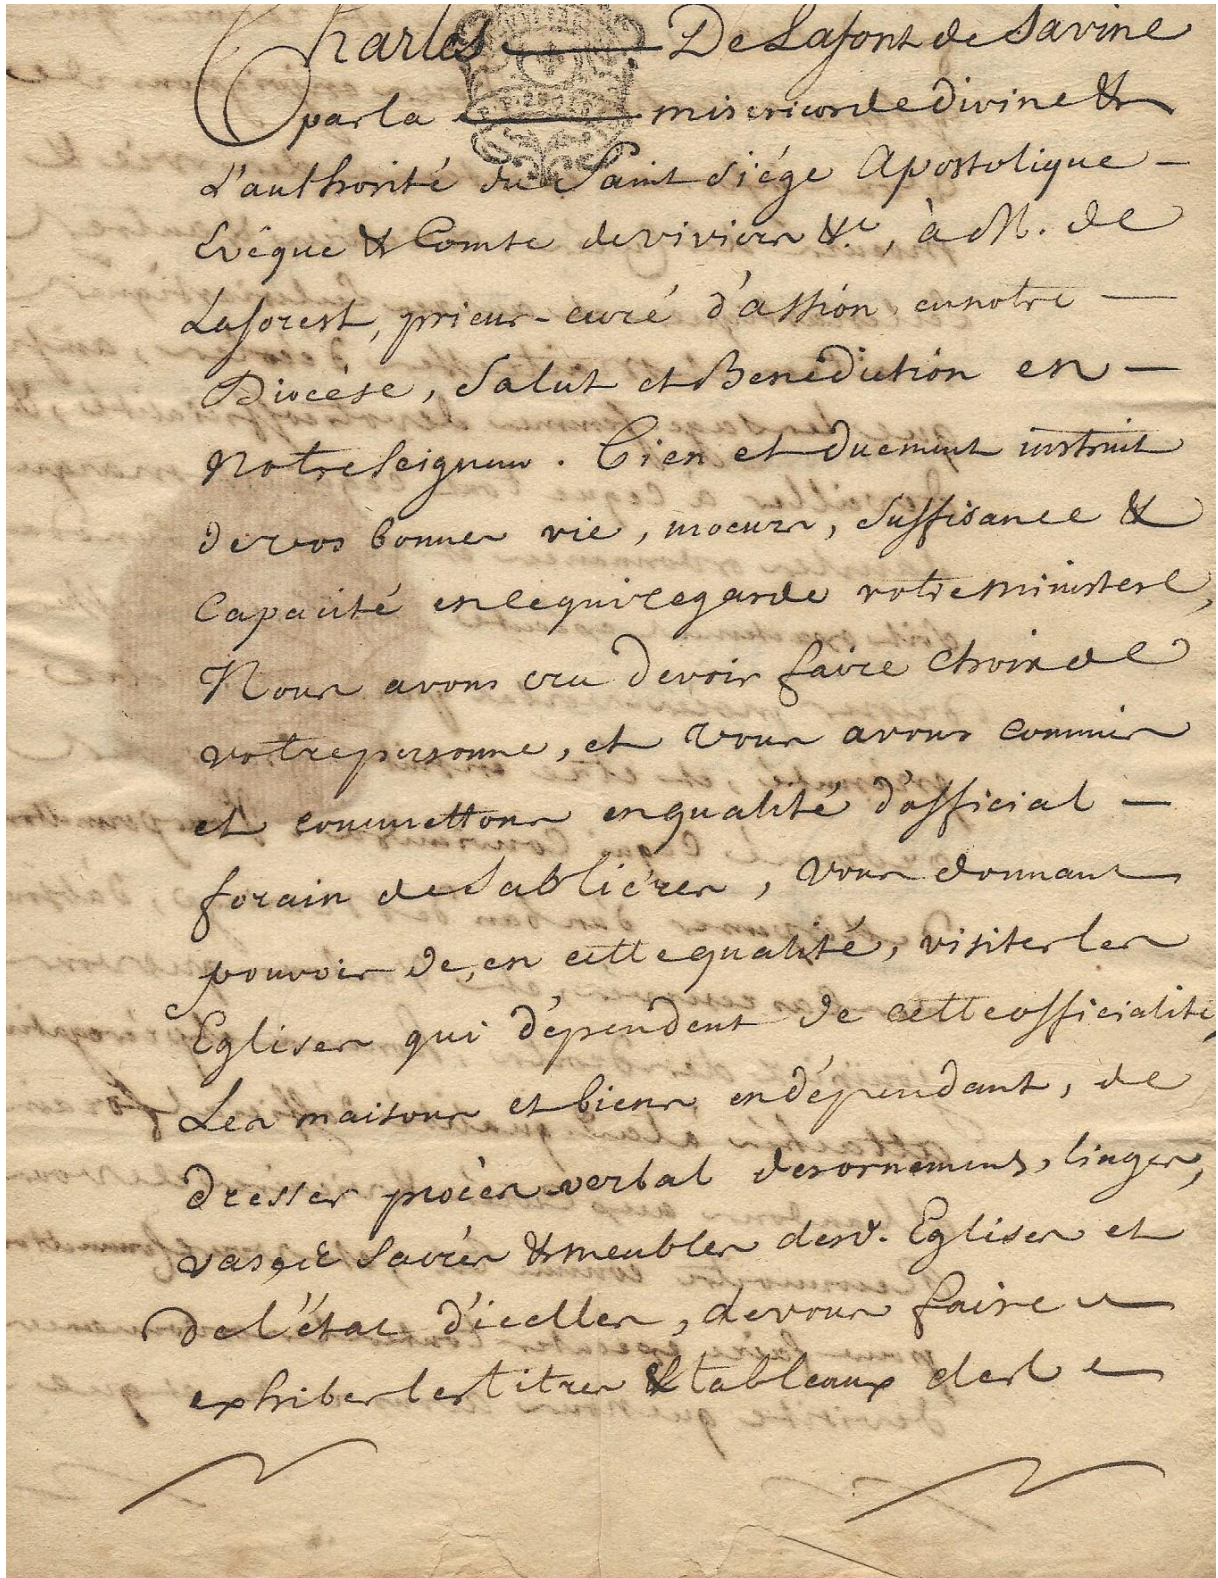 Charles De Lafont de Savine
par la misericorde divine &
L'authorité du Saint Siége Apostolique
Evêque & Comte de viviers &c, à M. de
Laforest, prieur-curé d'assion en notre
Diocèse, Salut et Benédiction en
Notre Seigneur. Bien et duement instruit
de vos bonnes vie, moeurs, suffisance &
Capacité en ce qui regarde votre ministere,
Nous avons cru devoir faire choix de
votre personne, et vous avons commis
et commettons en qualité d'official
forain de Sabliéres, vous donnant
pouvoir de, en cette qualité, visiter les
Eglises qui dépendent de cette officialité,
Les maisons et biens en dépendant, de
dresser procès verbal des ornements, linges,
vases Sacrés & meubles desd. Eglises et
de l'état d'icelles, de vous faire
exhiber les titres & tableaux desd